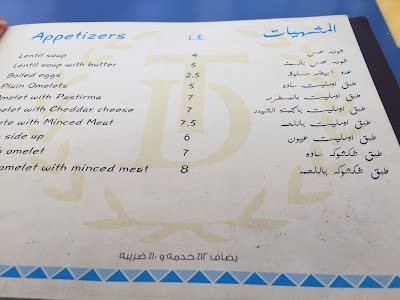 Appetizers L.E. المشهيات
Lentil soup 4 شوربة عدس
Lentil soup with butter 5 شوربة عدس بالزبدة
Boiled eggs 2.5 عدد ١ بيضة مسلوقة
Plain Omelets 5 طبق اومليت ساده
omelet with Pastirma 7 طبق اومليت بالبسطرمة
with Cheddar cheese 7 طبق اومليت
with Minced Meat 7.5 طبق اومليت باللحمة
side up 6 طبق اومليت عيون
omelet 7 طبق شكشوكه ساده
omelet with minced meat 8 طبق شكشوكه باللحمه
يضاف ١٢٪ خدمة و ١٠٪ ضريبة